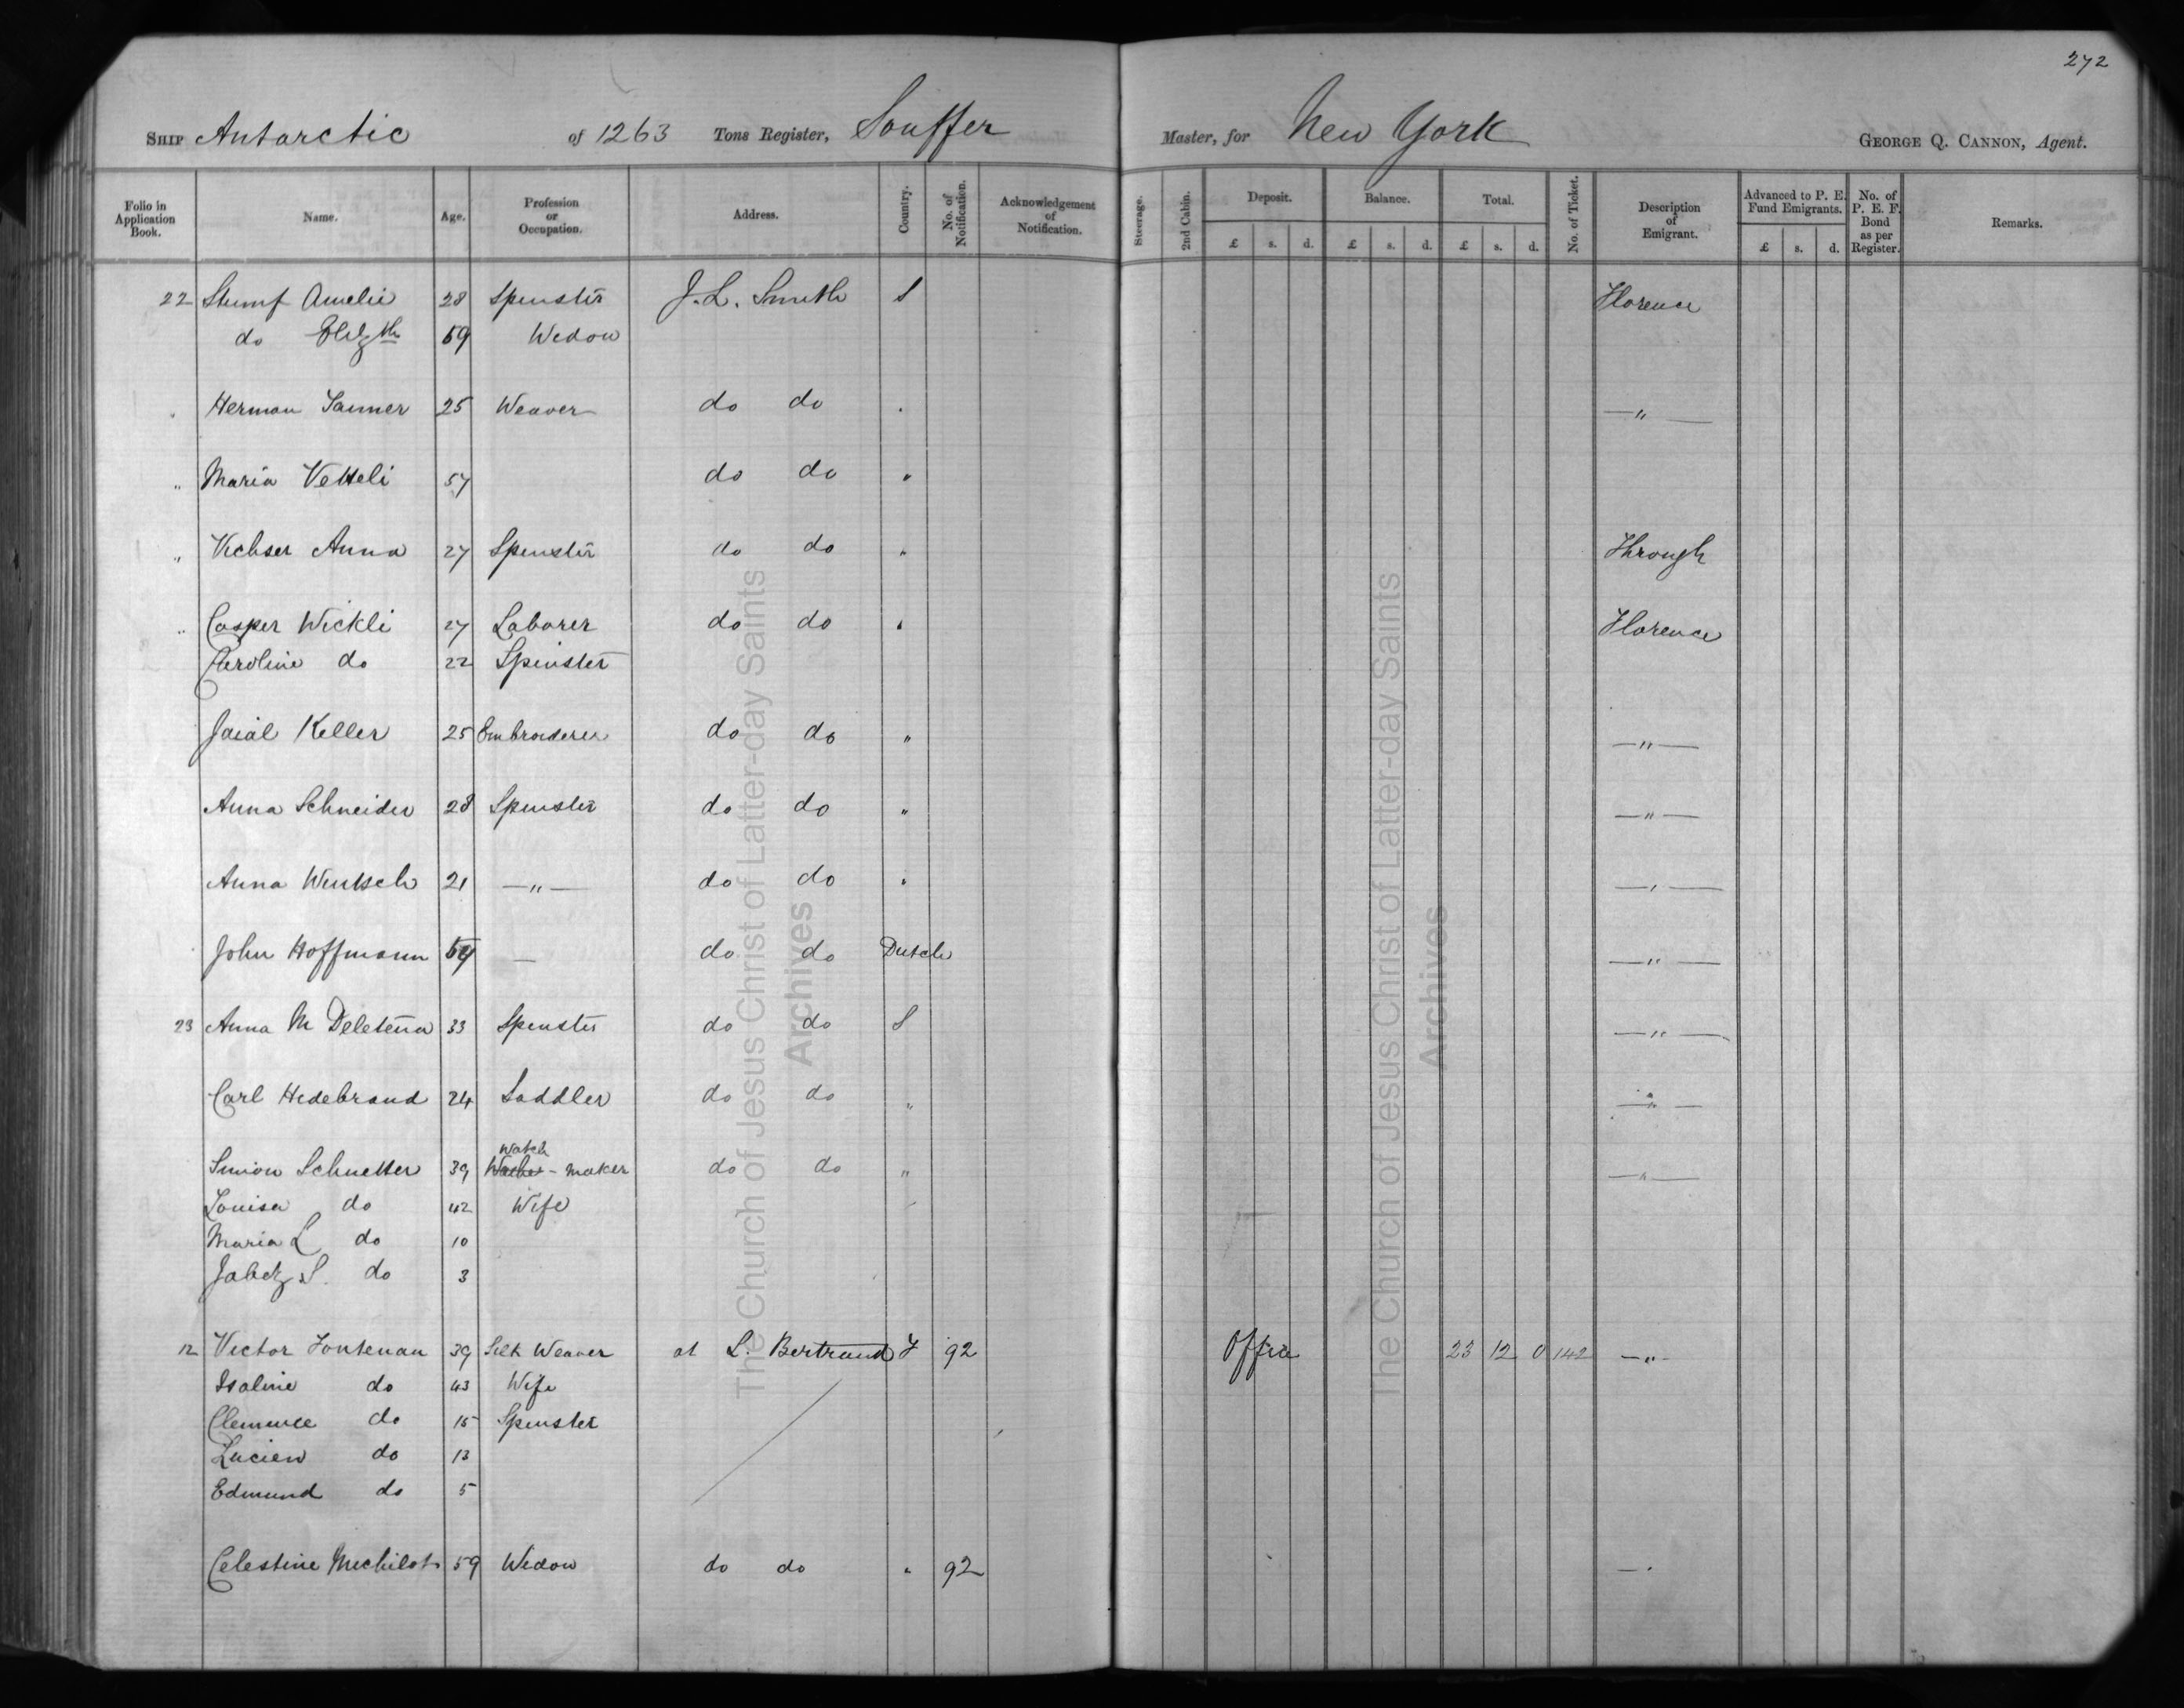 272
SHIP Antarctic of 1263 Tons Register, Souffer Master, for New York GEORGE Q. CANNON, Agent.
Folio in Application Book. Name. Age. Profession or Occupation. Address. Country. No. of Notification. Acknowledgement of Notification. Steerage. 2nd Cabin. Deposit. £ s. d. Balance. £ s. d. Total. £ s. d. No. of Ticket. Description of Emigrant. Advanced to P. E. Fund Emigrants. £ s. d. No. of P. E. F. Bond as per Register. Remarks.
22 Stumf Amelie 28 Spinster J. L. Smith S Florence
do Elizth 59 Widow
Herman Tanner 25 Weaver do do " — " —
" Maria Vetteli 57 do do "
" Vichser Anna 27 Spinster do do " Through
" Casper Wickli 27 Laborer do do " Florence
Caroline do 22 Spinster
Keller 25 Embroiderer do do " — " —
Anna Schneider 28 Spinster do do " — " —
Anna Wintsch 21 — " — do do " — " —
John Hoffmann — do do Dutch — " —
23 Anna M 33 Spinster do do S — " —
Carl Hedebrand 24 Saddler do do " — " —
Simon Schnetter 39 Watch - maker do do " — " —
Louisa do 42 Wife
Maria L do 10
Jabetz S. do 3
12 Victor Fontenau 39 Silk Weaver at L. Bertrand F 92 Office 23 12 0 142 — " —
Isaline do 43 Wife
Clemence do 15 Spinster
Lucien do 13
Edmund do 5
Celestine Michilot 59 Widow do do " 92 — "
The Church of Jesus Christ of Latter-day Saints
Archives
The Church of Jesus Christ of Latter-day Saints
Archives